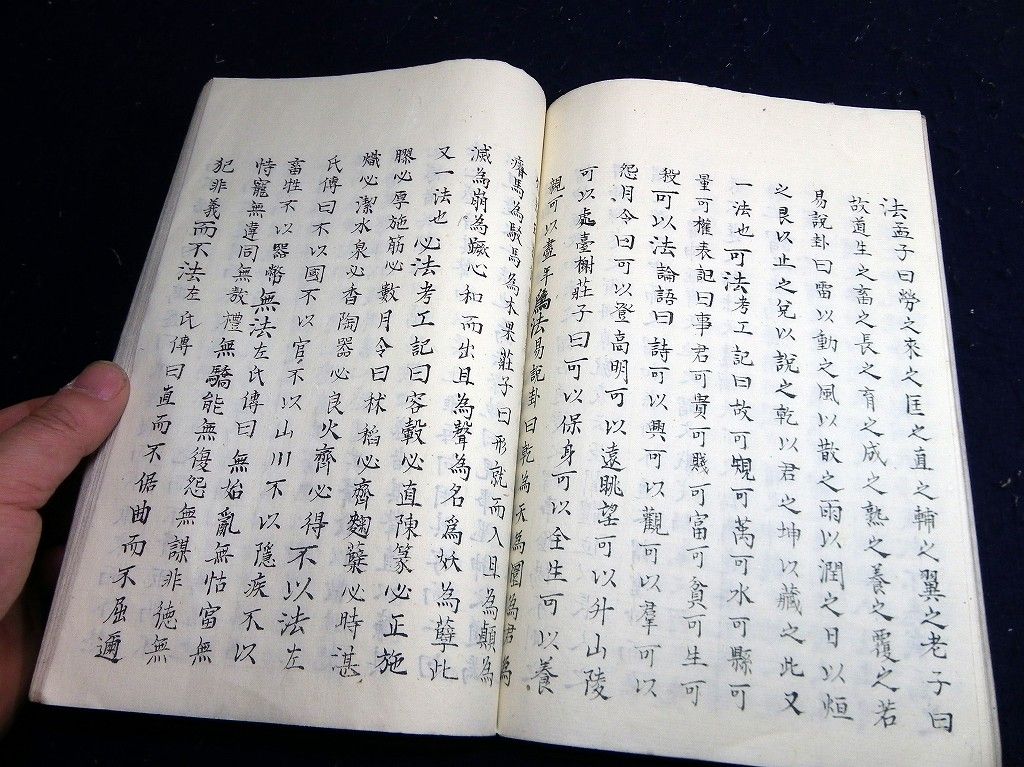 法孟子曰勞之來之匡之直之輔之翼之老子曰
故道生之畜之長之育之成之熟之養之覆之若
易說卦曰雷以動之風以散之雨以潤之日以烜
之艮以止之兌以說之乾以君之坤以藏之此又
一法也可法考工記曰故可規可萭可水可縣可
量可權表記曰事君可貴可賤可富可貧可生可
殺可以法論語曰詩可以興可以觀可以羣可以
怨月令曰可以登高明可以遠眺望可以升山陵
可以處臺榭莊子曰可以保身可以全生可以養
親可以盡年為法易說卦曰乾為天為圜為君為
瘠馬為駁馬為木果莊子曰形就而入且為顛為
滅為崩為蹶心和而出且為聲為名為妖為孽此
又一法也必法考工記曰容轂必直陳篆必正施
膠必厚施筋必數月令曰秫稻必齊麴蘖必時湛
熾必潔水泉必香陶器必良火齊必得不以法左
氏傳曰不以國不以官不以山川不以隱疾不以
畜牲不以器幣無法左氏傳曰無始亂無怙富無
恃寵無違同無敖禮無驕能無復怨無謀非德無
犯非義而不法左氏傳曰直而不倨曲而不屈邇